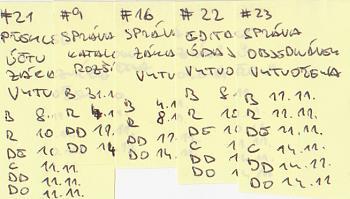 #21
ÚČTU
ZÁKA
VYTVO
B 8.
R 10
DE 10
C 11.11.
DD 11.11.
DO 11.11.
#9
SPRÁVA
KATAL
ROZŠ
B 31.10
R
DD 12.
DO 14
#16
SPRÁV
ZÁKA
VYTV
B 4.11
R 8.11
DD 12.
DO 14.
#22
EDITA
ÚDAJ
VYTVO
B 8.
R 10
DE 10
C 11
DD 11
DO 11
#23
SPRÁVA
OBJEDNÁVEK
VYTVOŘENA
B 11.11.
R 11.11.
DE 11.11.
C 14.11.
DD 14.11.
DO 14.11